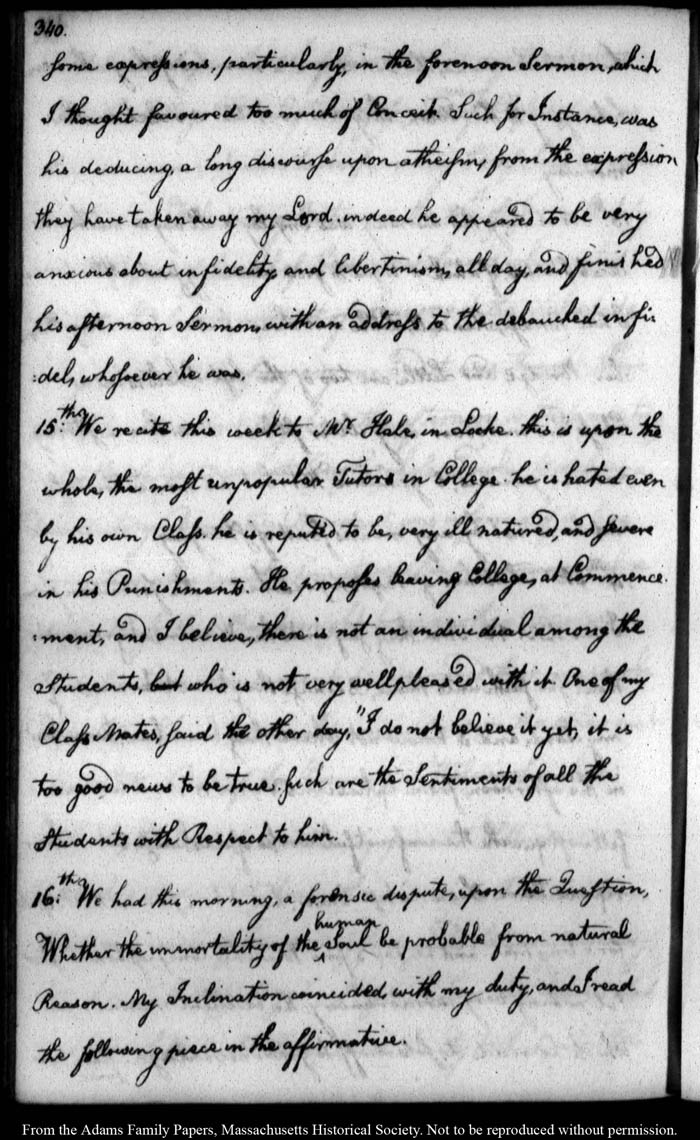 340.
some expressions, particularly, in the forenoon Sermon, which
I thought favoured too much of Conceit. Such for Instance, was
his deducing, a long discourse upon atheism, from the expression
they have taken away my Lord. indeed he appeared to be very
anxious about infidelity, and libertinism, all day, and finished
his afternoon Sermon, with an address to the debauched infi:
:del, whosoever he was.
15.th We recite this week to Mr. Hale, in Locke. this is upon the
whole, the most unpopular Tutor in College. he is hated even
by his own Class. he is reputed to be, very ill natured, and severe
in his Punishments. He proposes leaving College, at Commence:
:ment, and I believe, there is not an individual among the
Students, but who is not very well pleased with it. One of my
Class Mates, said the other day, "I do not believe it yet, it is
too good news to be true. such are the Sentiments of all the
Students with Respect to him.
16.th We had this morning, a forensic dispute, upon the Question,
human
Whether the immortality of the ‸ Soul be probable from natural
Reason. My Inclination coincided, with my duty, and I read
the following piece in the affirmative.
From the Adams Family Papers, Massachusetts Historical Society. Not to be reproduced without permission.